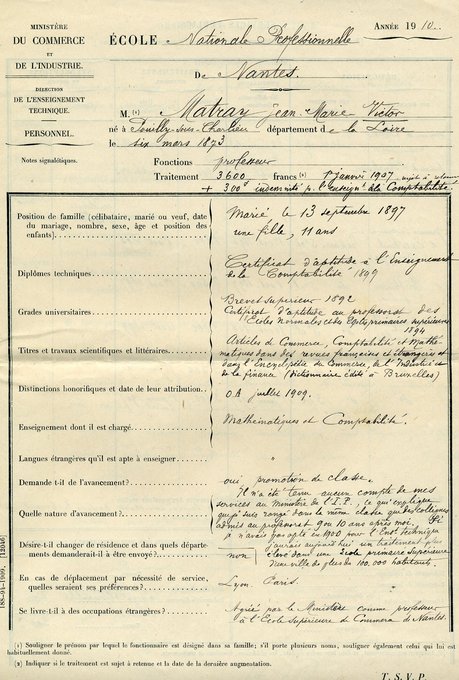 MINISTÈRE
DU COMMERCE
ET
DE L'INDUSTRIE.
DIRECTION
DE L'ENSEIGNEMENT
TECHNIQUE.
PERSONNEL.
Notes signalétiques.
ANNÉE 1910.
ÉCOLE Nationale Professionnelle
DE Nantes.
M. (1) Matray Jean Marie Victor
né à Pouilly-sous-Charlieu département de la Loire
le six mars 1873
Fonctions professeur
Traitement 3600 francs (2) 1er janvier 1907 sujet à retenue
+ 300f indemnité pr l'enseignt de la Comptabilité
Position de famille (célibataire, marié ou veuf, date
du mariage, nombre, sexe, âge et position des
enfants)
Marié le 13 septembre 1897
une fille, 11 ans
Diplômes techniques
Certificat d'aptitude à l'Enseignement
de la Comptabilité 1899
Grades universitaires
Brevet supérieur 1892
Certificat d'aptitude au professorat des
Ecoles Normales et des Ecoles primaires supérieures
1894
Titres et travaux scientifiques et littéraires
Articles de Commerce, Comptabilité et Mathé-
matiques dans des revues françaises et étrangères et
dans l'Encyclopédie du Commerce, de l'Industrie et
de la finance (Dictionnaire édité à Bruxelles)
Distinctions honorifiques et date de leur attribution
O.A. juillet 1909.
Enseignement dont il est chargé
Mathématiques et Comptabilité.
Langues étrangères qu'il est apte à enseigner
"
Demande t-il de l'avancement?
oui, promotion de classe.
Quelle nature d'avancement?
Il n'a été tenu aucun compte de mes
services au Ministère de l'I.P., ce qui explique
que je suis rangé dans la même classe que des collègues
admis au professorat 9 ou 10 ans après moi. Si
je n'avais pas opté en 1908 pour l'Enst Technique
j'aurais aujourd'hui un traitement plus
élevé dans une École primaire supérieure
d'une ville de plus de 100.000 habitants.
Désire-t-il changer de résidence et dans quels dépar-
tements demanderait-il à être envoyé?
non
En cas de déplacement par nécessité de service,
quelles seraient ses préférences?
Lyon. Paris.
Se livre-t-il à des occupations étrangères?
Agréé par le Ministère comme professeur
à l'Ecole Supérieure de Commerce de Nantes.
(1) Souligner le prénom par lequel le fonctionnaire est désigné dans sa famille; s'il porte plusieurs noms, souligner également celui qui lui est
habituellement donné.
(2) Indiquer si le traitement est sujet à retenue et la date de la dernière augmentation.
T. S. V. P.